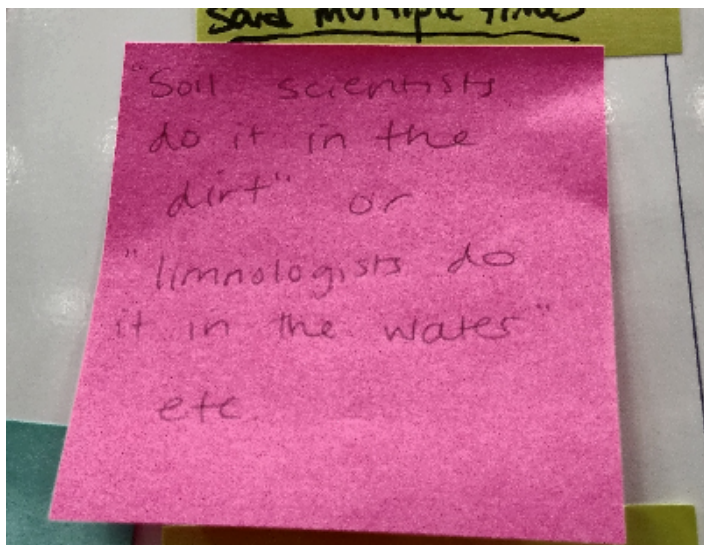 said multiple times
"Soil scientists
do it in the
dirt" or
"limnologists do
it in the water"
etc